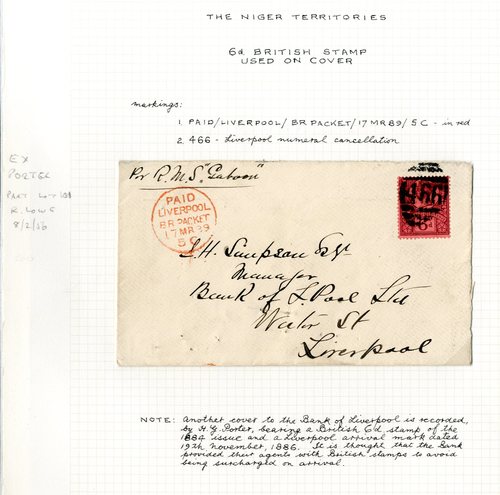 THE NIGER TERRITORIES
6d BRITISH STAMP
USED ON COVER
markings:
1. PAID/LIVERPOOL/BR PACKET/17 MR 89/5 C - in red
2. 466 - Liverpool numeral cancellation
EX
PORTER
PART LOT
R. LOWE
8/2/56
Per R.M.S. "Gaboon"
PAID
LIVERPOOL
BR PACKET
17 MR 89
5 C
466
6d
J.H. Simpson Esqr
Manager
Bank of L.Pool Ltd
Water St
Liverpool
NOTE: Another cover to the Bank of Liverpool is recorded,
by H.G. Porter, bearing a British 6d stamp of the
1884 issue and a Liverpool arrival mark dated
19th November, 1886. It is thought that the Bank
provided their agents with British stamps to avoid
being surcharged on arrival.